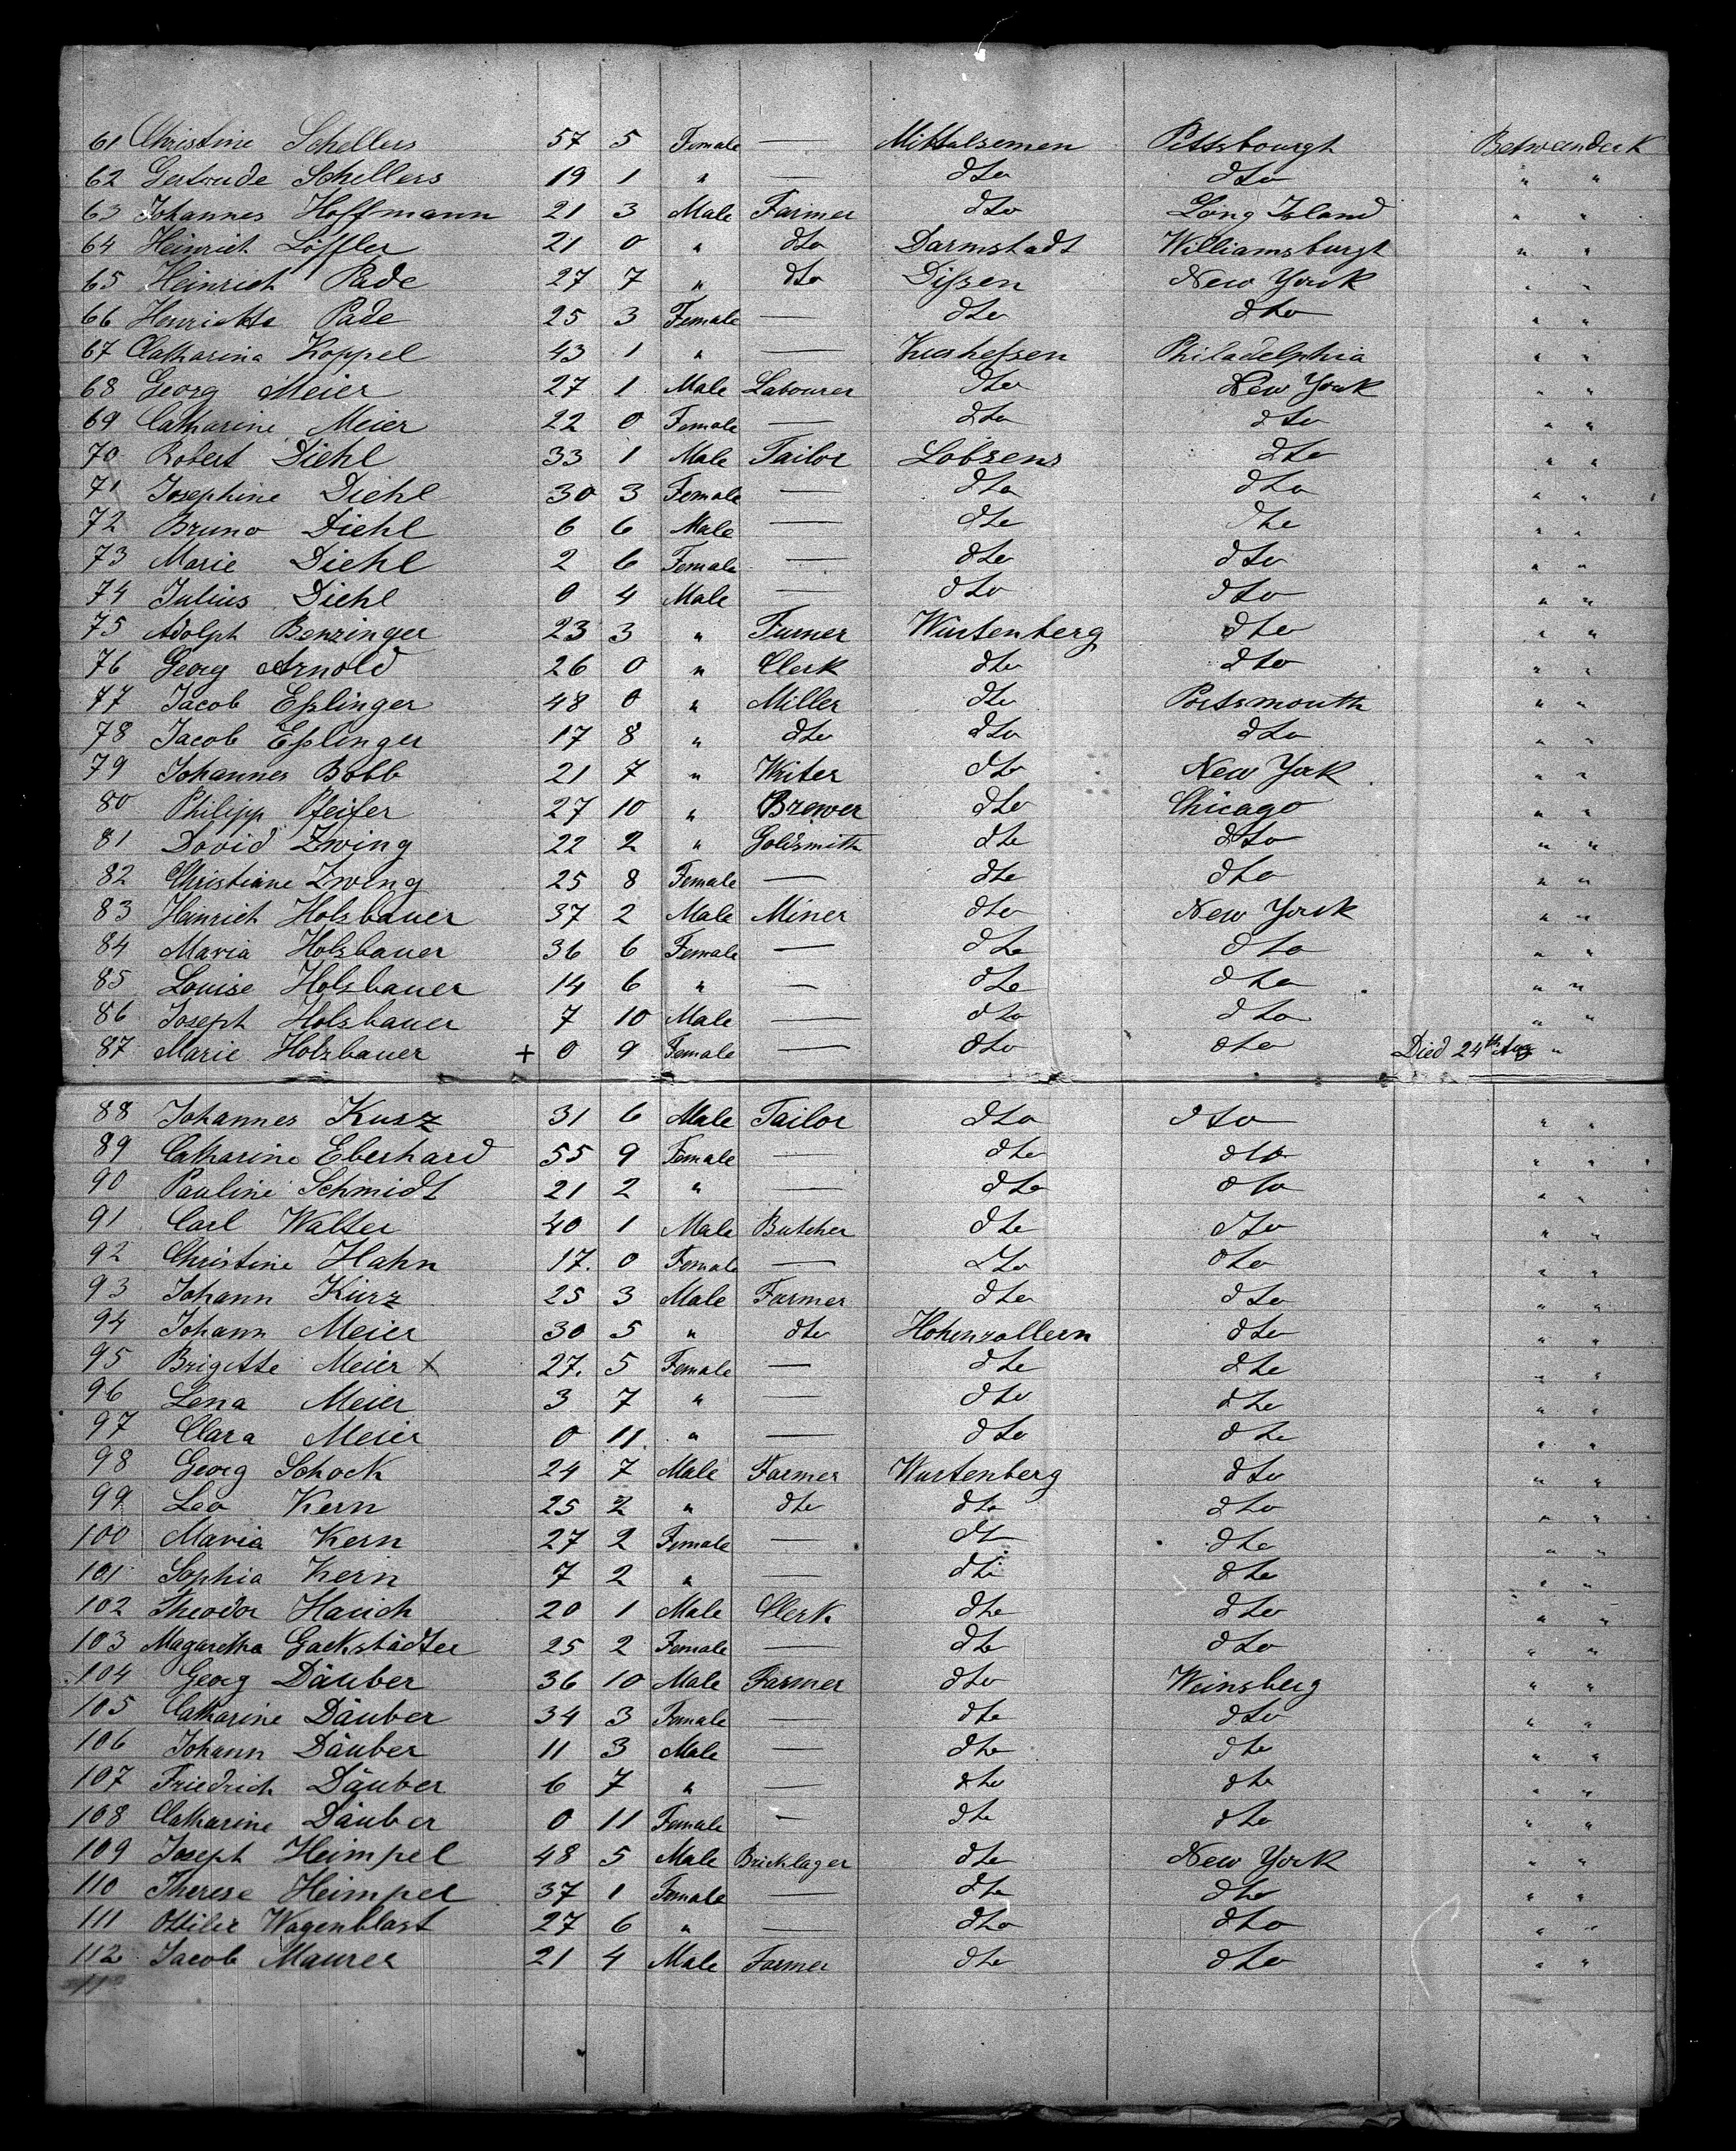 61 Christine Schellers 57 5 Female — Mittalsemen Pittsbourgh Betweendeck
62 Gertrude Schellers 19 1 " — dto dto " "
63 Johannes Hoffmann 21 3 Male Farmer dto Long Island " "
64 Heinrich Löffler 21 0 " dto Darmstadt Williamsburgh " "
65 Heinrich Pade 27 7 " dto Dißen New York " "
66 Henriette Pade 25 3 Female — dto dto " "
67 Catharina Koppel 43 1 " — Kurheßen Philadelphia " "
68 Georg Meier 27 1 Male Labourer dto New York " "
69 Catharine Meier 22 0 Female — dto dto " "
70 Robert Diehl 33 1 Male Tailor Lobsens dto " "
71 Josephine Diehl 30 3 Female — dto dto " "
72 Bruno Diehl 6 6 Male — dto dto " "
73 Marie Diehl 2 6 Female — dto dto " "
74 Julius Diehl 0 4 Male — dto dto " "
75 Adolph Benzinger 23 3 " Turner Wurtenberg dto " "
76 Georg Arnold 26 0 " Clerk dto dto " "
77 Jacob Eßlinger 48 0 " Miller dto Portsmouth " "
78 Jacob Eßlinger 17 8 " dto dto dto " "
79 Johannes Bobb 21 7 " Writer dto New York " "
80 Philipp Pfeifer 27 10 " Brewer dto Chicago " "
81 David Zwing 22 2 " Goldsmith dto dto " "
82 Christiane Zwing 25 8 Female — dto dto " "
83 Heinrich Holzbauer 37 2 Male Miner dto New York " "
84 Maria Holzbauer 36 6 Female — dto dto " "
85 Louise Holzbauer 14 6 " — dto dto " "
86 Joseph Holzbauer 7 10 Male — dto dto " "
87 Marie Holzbauer + 0 9 Female — dto dto Died 24th Aug "
88 Johannes Kurz 31 6 Male Tailor dto dto " "
89 Catharine Eberhard 55 9 Female — dto dto " "
90 Pauline Schmidt 21 2 " — dto dto " "
91 Carl Walter 40 1 Male Butcher dto dto " "
92 Christine Hahn 17. 0 Female — dto dto " "
93 Johann Kurz 25 3 Male Farmer dto dto " "
94 Johann Meier 30 5 " dto Hohenzollern dto " "
95 Brigitte Meier x 27. 5 Female — dto dto " "
96 Lena Meier 3 7 " — dto dto " "
97 Clara Meier 0 11. " — dto dto " "
98 Georg Schock 24 7 Male Farmer Wurtenberg dto " "
99 Leo Kern 25 2 " dto dto dto " "
100 Maria Kern 27 2 Female — dto dto " "
101 Sophia Kern 7 2 " — dto dto " "
102 Theodor Hauch 20 1 Male Clerk dto dto " "
103 Magaretha Gackstädter 25 2 Female — dto dto " "
104 Georg Däuber 36 10 Male Farmer dto Weinsberg " "
105 Catharine Däuber 34 3 Female — dto dto " "
106 Johann Däuber 11 3 Male — dto dto " "
107 Friedrich Däuber 6 7 " — dto dto " "
108 Catharine Däuber 0 11 Female — dto dto " "
109 Joseph Heimpel 48 5 Male Bricklager dto New York " "
110 Therese Heimpel 37 1 Female — dto dto " "
111 Ottilie Wagenblast 27 6 " — dto dto " "
112 Jacob Maurer 21 4 Male Farmer dto dto " "